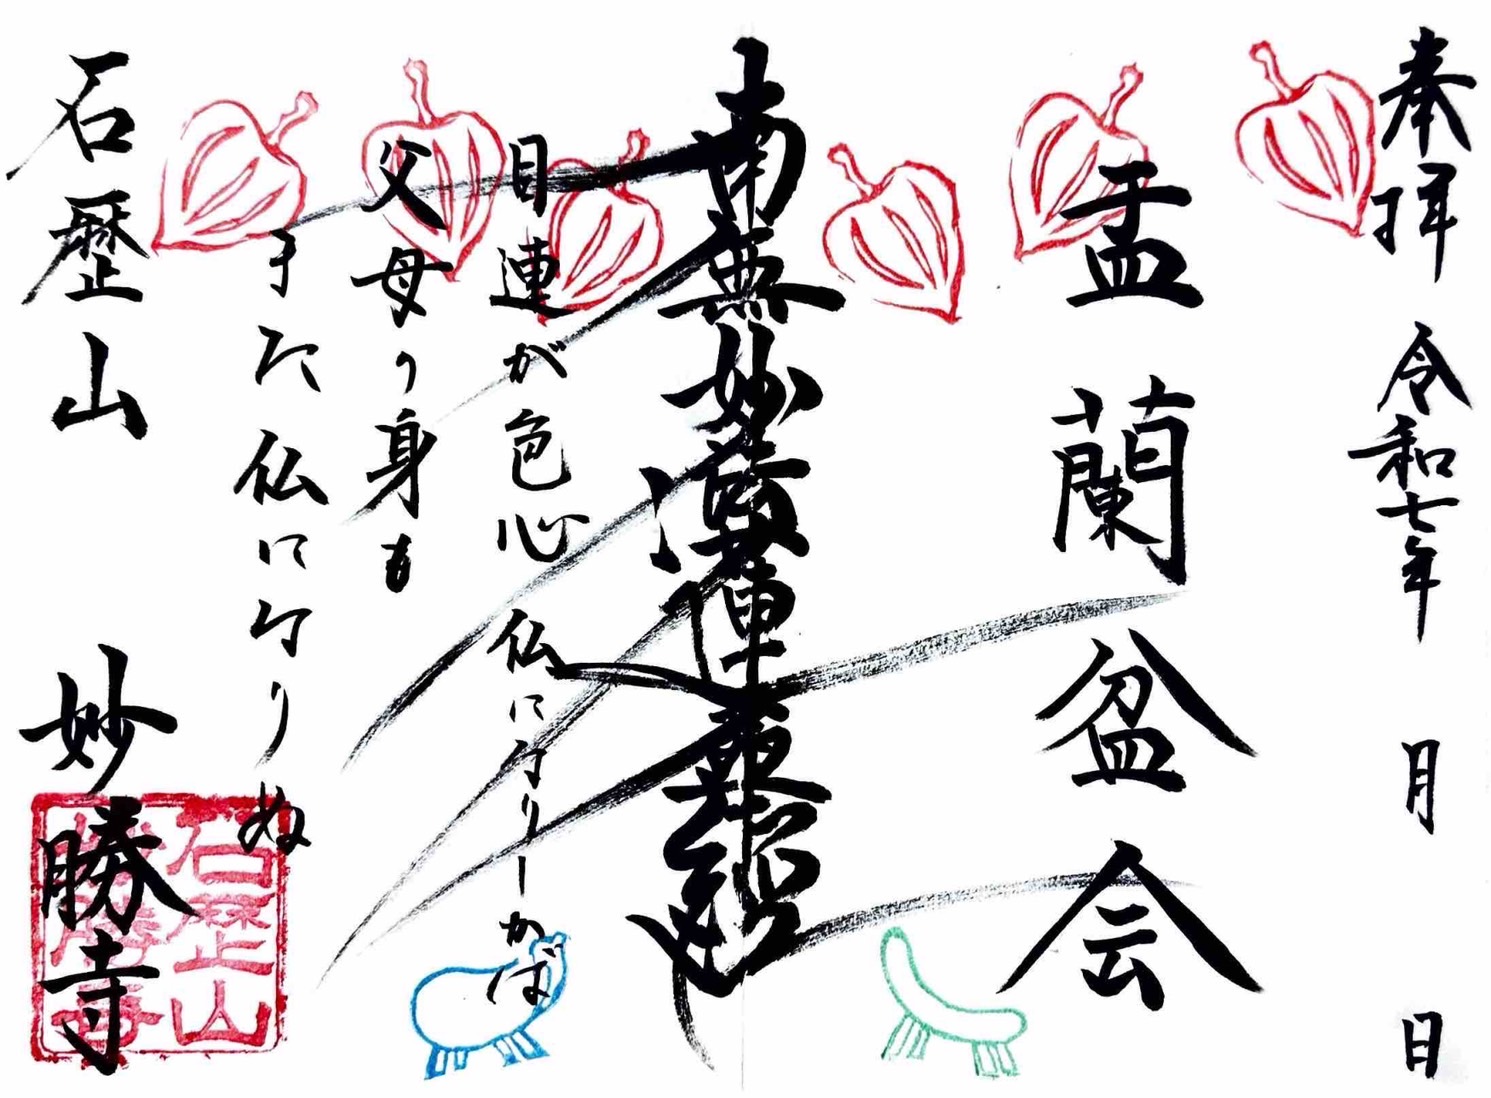 奉拝 令和七年 月 日
盂蘭盆会
南無妙法蓮華経
日蓮が色心 仏になりしかば
父母の身も
また仏になりぬ
石歴山 妙勝寺
石歴山